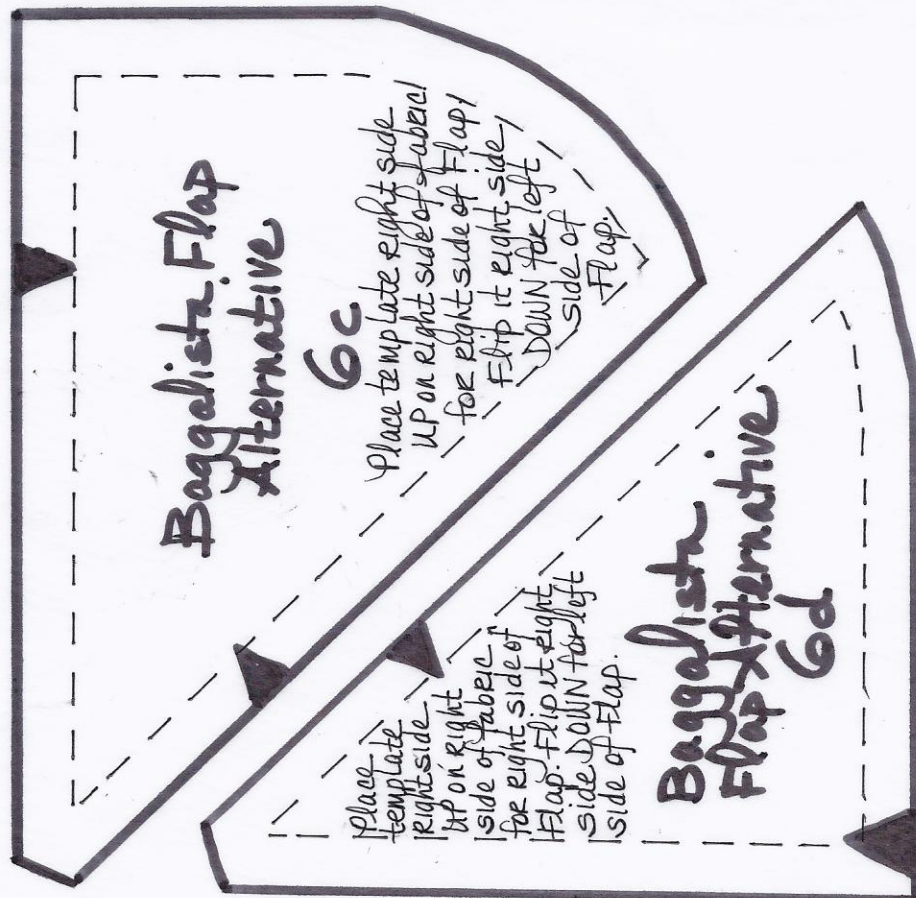 Baggalista Flap
Alternative
6c
Place template right side
UP on right side of fabric
for right side of Flap/
Flip it right side
DOWN for left
side of
Flap.
Place
template
right side
UP on right
side of fabric
for right side of
Flap. Flip it right
side DOWN for left
side of Flap.
Baggalista
Flap Alternative
6d